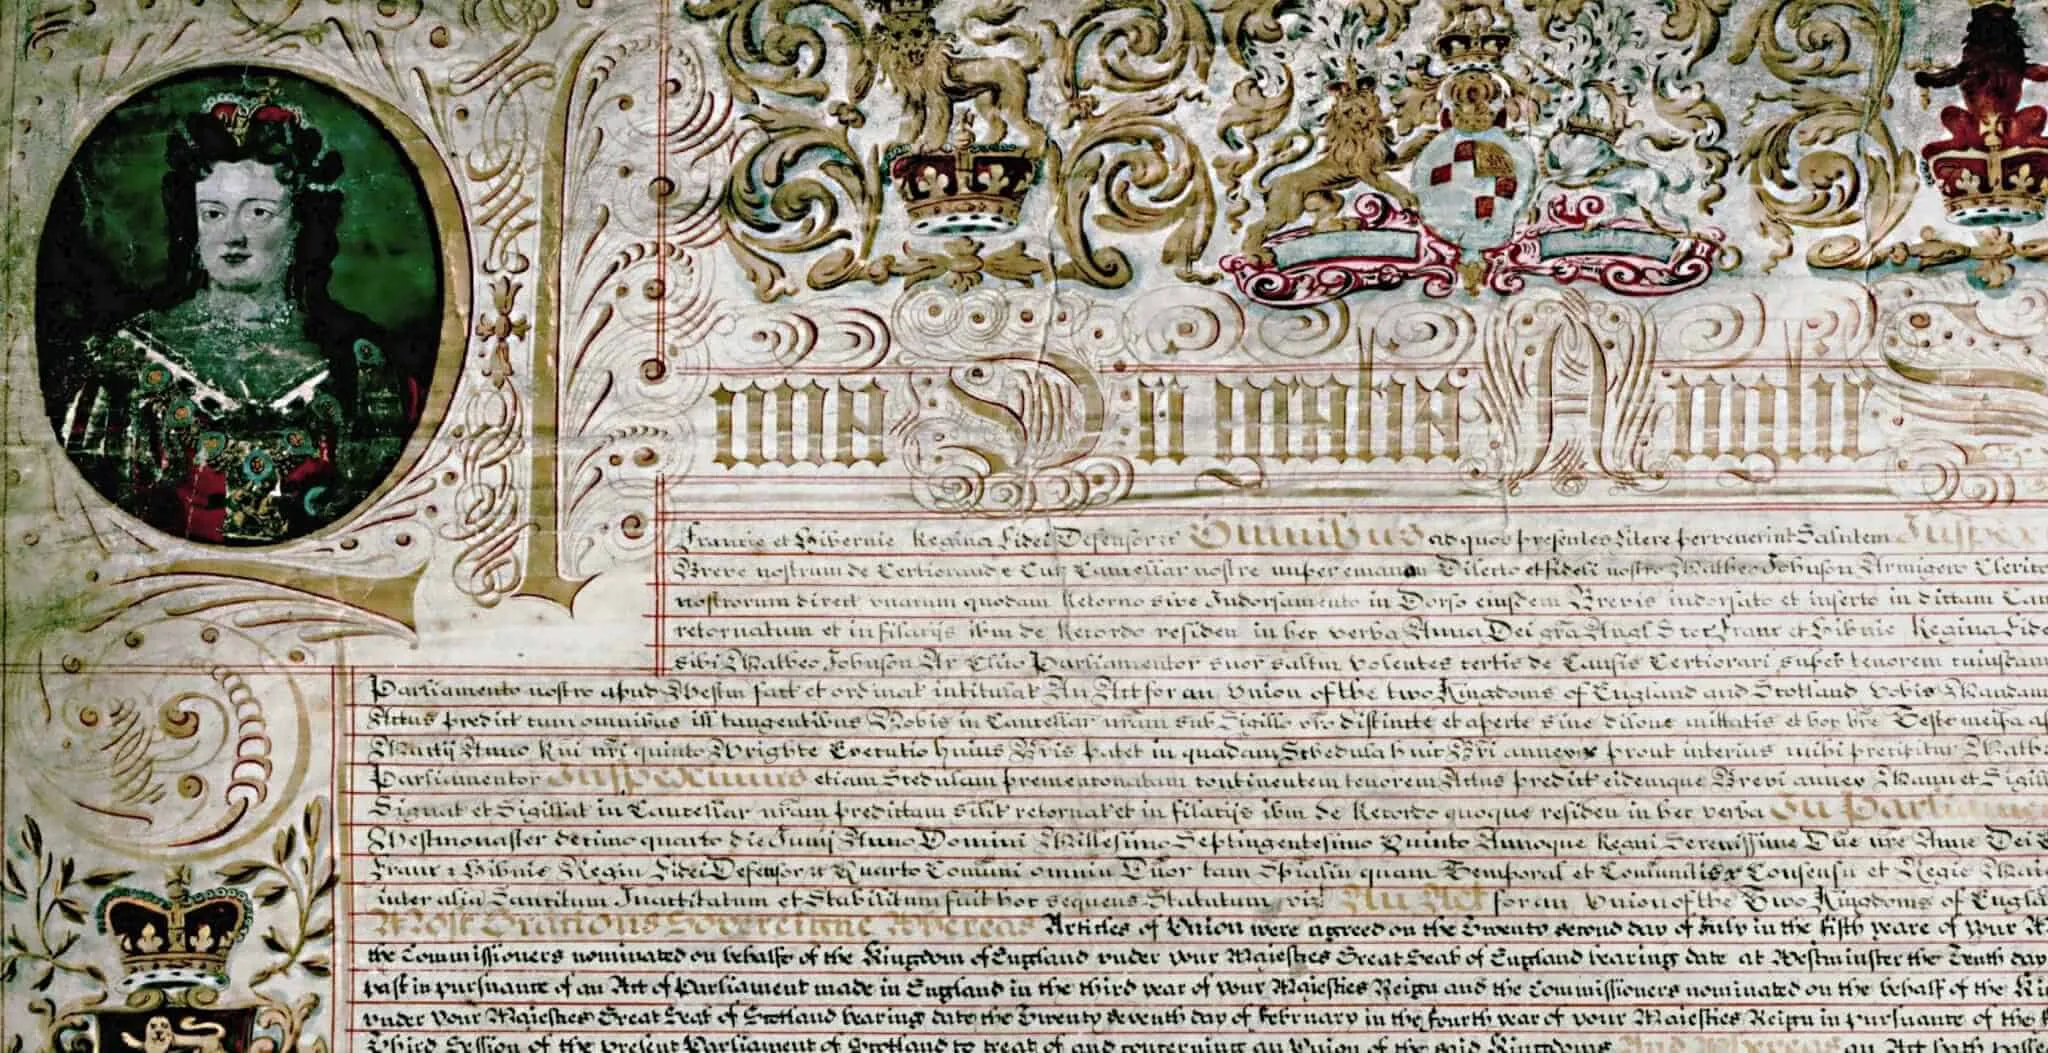 Anna Dei gratia Anglie S
Francie et Hibernie Regina Fidei Defensor &c Omnibus ad quos presentes Litere pervenerint Salutem Inspex
Breve nostrum de Certiorand e Cur Cancellar nostre nuper emanan Dilecto et fideli nostro Matheo Johnson Armigero Clerico
nostrorum direct unacum quodam Retorno sive Indorsamento in Dorso eiusdem Brevis indorsato et inserto in dictam Can
retornatum et in filacijs ibm de Recordo residen in hec verba Anna Dei gra Angl Scoc Franc et Hibnie Regina Fidei
sibi Matheo Johnson Ar Clico Parliamentor suor saltm Volentes certis de Causis Certiorari super tenorem cuiusdam
Parliamento nostro apud Westm fact et ordinat intitulat An Act for an Union of the two Kingdoms of England and Scotland vobis Mandam
Actus predict cum omnibus ill tangentibus Nobis in Cancellar nram sub Sigillo vro distincte et aperte sine dilone mittatis et hoc bre Teste meipa ap
Martij Anno Rni nri quinto Wrighte Executio huius Bris patet in quadam Schedula huic Bri annex prout interius mihi precipitur Math
Parliamentor Inspeximus etiam Scedulam prementionatam continentem tenorem Actus predict eidemque Brevi annex Manu et Sigill
Signat et Sigillat in Cancellar nram predictam silit retornat et in filacijs ibm de Recordo quoque residen in hec verba In Parliame
Westmonaster decimo quarto die Junij Anno Domini Millesimo Septingentesimo Quinto Annoque Regni Serenissime Dne nre Anne Dei
Franc & Hibnie Regin Fidei Defensor &c Quarto Comuni omniu Dnor tam Spialiu quam Temporal et Comuniu Consensu et Regie Maie
inter alia Sancitum Inactitatum et Stabilitum fuit hoc sequens Statutum viz An Act for an Union of the Two Kingdoms of Engla
Most Gracious Sovereigne Whereas Articles of Union were agreed on the Twenty second day of July in the fifth yeare of your
the Commissioners nominated on behalfe of the Kingdom of England under your Majesties Great Seal of England bearing date at Westminster the Tenth day
past in pursuance of an Act of Parliament made in England in the third year of your Majesties Reign and the Commissioners nominated on the behalf of the Ki
under your Majesties Great Seal of Scotland bearing date the Twenty seventh day of February in the fourth year of your Majesties Reign in pursuance of the
Third Session of the present Parliament of Scotland to treat of and concerning an Union of the said Kingdoms And Whereas an Act hath passe